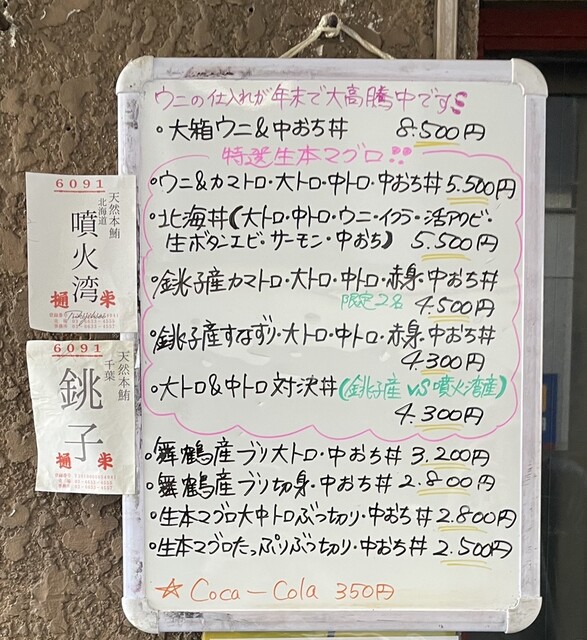 ウニの仕入れが年末で大高騰中です
・大箱ウニ&中おち丼 8.500円
特選生本マグロ!!
・ウニ&カマトロ・大トロ・中トロ・中おち丼 5.500円
・北海丼(大トロ・中トロ・ウニ・イクラ・活アワビ・
生ボタンエビ・サーモン・中おち) 5.500円
・銚子産カマトロ・大トロ・中トロ・赤身・中おち丼
限定2名 4.500円
・銚子産すなずり・大トロ・中トロ・赤身・中おち丼
4.300円
・大トロ&中トロ対決丼(銚子産 VS 噴火湾産)
4.300円
・舞鶴産ブリ大トロ・中おち丼 3.200円
・舞鶴産ブリ切身・中おち丼 2.800円
・生本マグロ大中トロぶっちり・中おち丼 2.800円
・生本マグロたっぷりぶっちり・中おち丼 2.500円
☆ Coca-Cola 350円
6091
天然本鮪
北海道
噴火湾
樋栄
6091
天然本鮪
千葉
銚子
樋栄